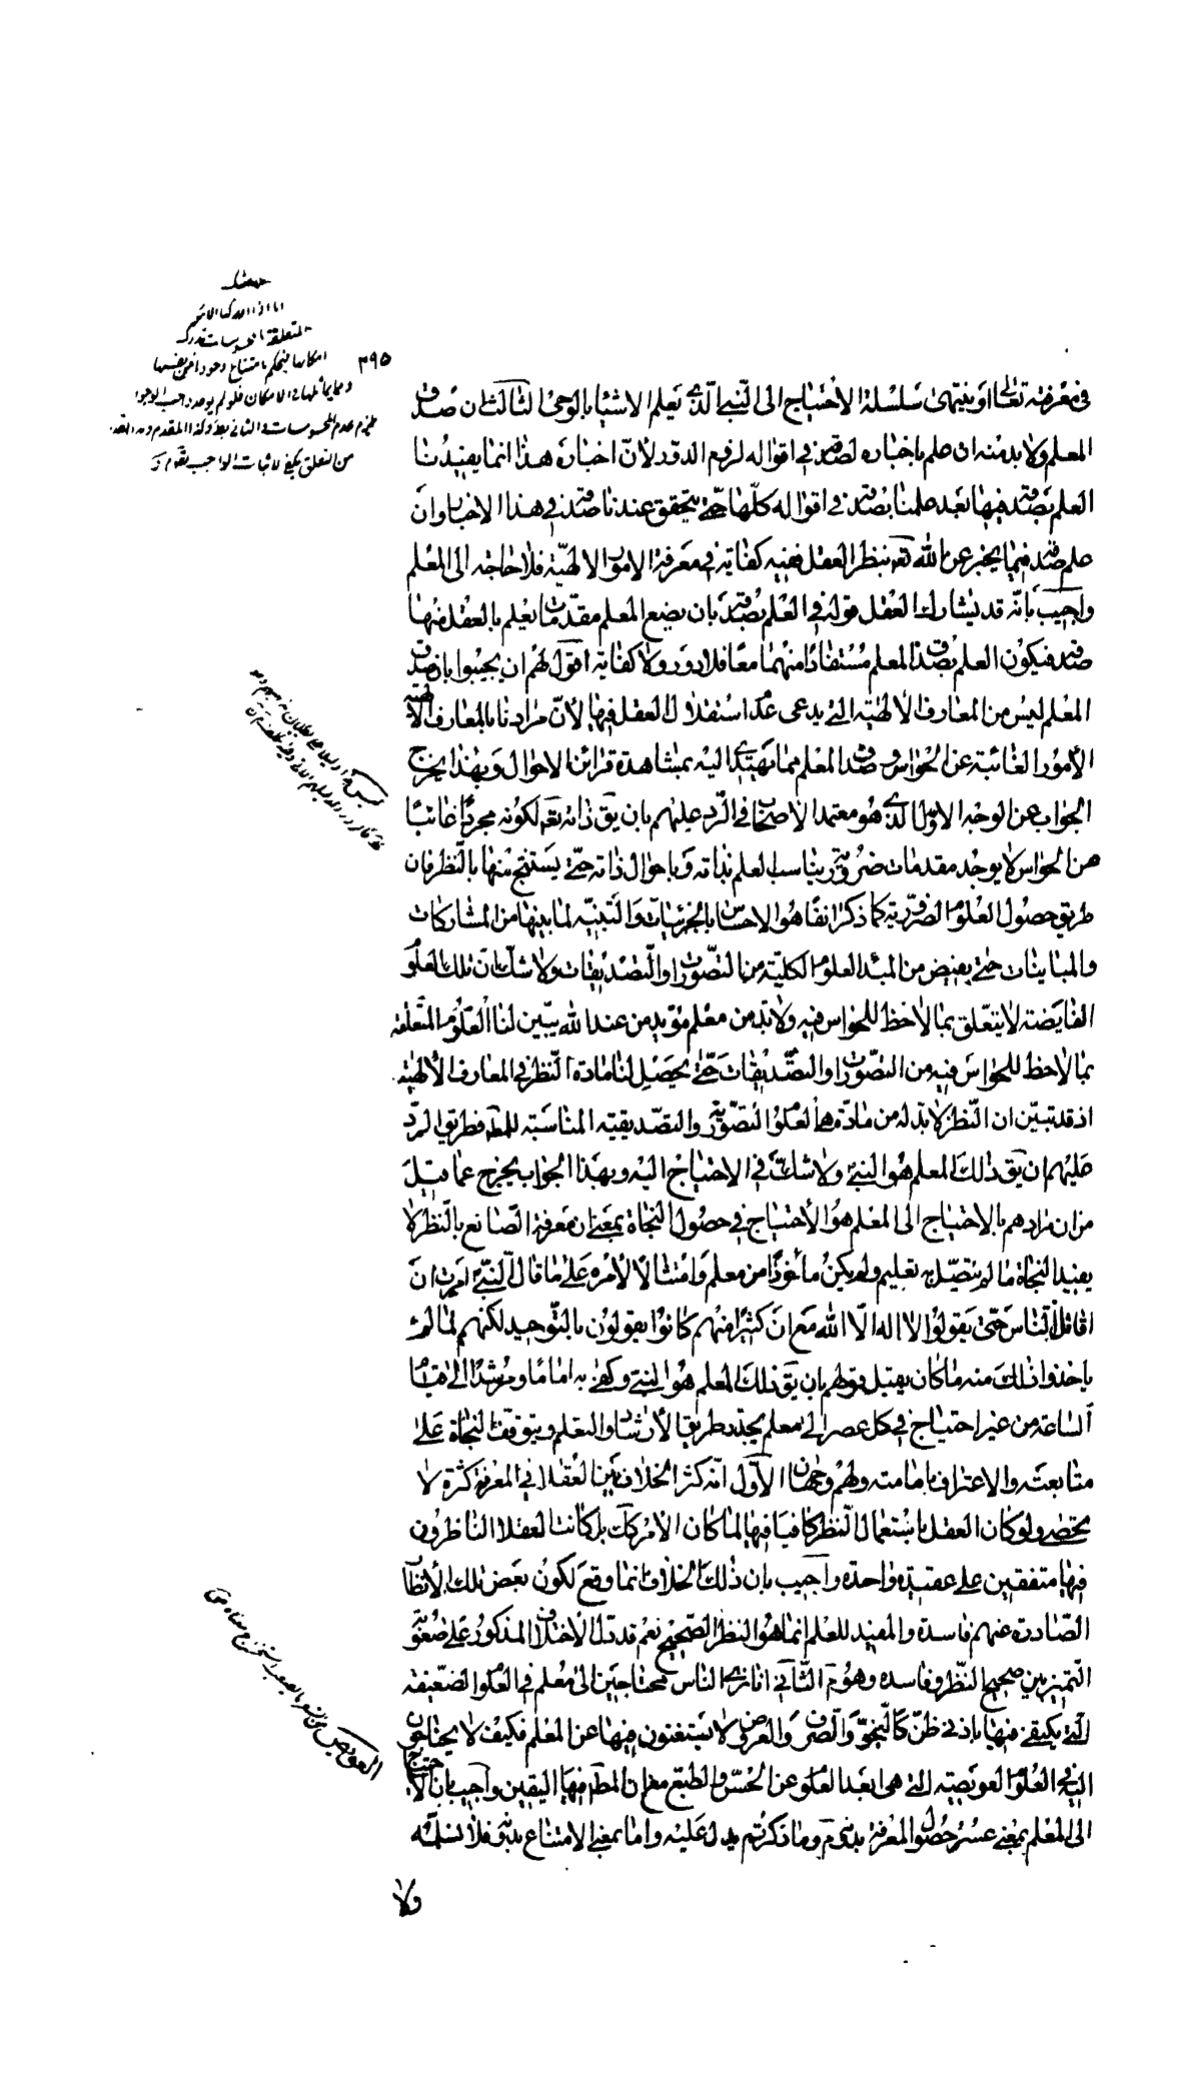 في معرفته تعالى او ينتهى سلسلة الاحتياج الى النبي الذي يعلم الاشياء بالوحي الثالث ان صدق
المعلم ولا بد منه ان علم باخباره لصدقه في اقواله لزم الدور لان اخباره هذا انما يفيدنا
العلم بصدقه فيها بعد علمنا بصدقه في اقواله كلها حتى يتحقق عندنا صدقه في هذا الاخبار وان
علم صدقه فيما يخبر عن الله تعه بنظر العقل ففيه كفاية في معرفة الامور الالهية فلا حاجة الى المعلم
واجيب بانه قد يشارك العقل قوله في العلم بصدقه بان يضع المعلم مقدمات يعلم بالعقل منها
صدقه فيكون العلم بصدق المعلم مستفادا منهما معا فلا دور ولا كفاية اقول لهم ان يجيبوا بان صدق
المعلم ليس من المعارف الالهية التي يدعى عدم استقلال العقل فيها لان مرادنا بالمعارف الالهية
الامور الغائبة عن الحواس وصدق المعلم مما يهتدى اليه بمشاهدة قرائن الاحوال وبهذا يخرج
الجواب عن الوجه الاول الذي هو معتمد الاصحاب في الرد عليهم بان يق ذاته تعه لكونه مجردا غائبا
عن الحواس لا يوجد مقدمات ضرورية يناسب العلم بذاته وباحوال ذاته حتى يستنتج منها بالنظر فان
طريق حصول العلوم الضرورية كما ذكر انفا هو الاحساس بالجزئيات والتنبيه لما بينها من المشاركات
والمباينات حتى يفيض من المبدء العلوم الكلية من التصورات والتصديقات ولا شك ان تلك العلوم
الفايضة لا يتعلق بما لاحظ للحواس فيه ولا بد من معلم مؤيد من عند الله يبين لنا العلوم المتعلقة
بما لاحظ للحواس فيه من التصورات والتصديقات حتى يحصل لنا مادة النظر في المعارف الالهية
اذ قد تبين ان النظر لا بد له من مادة هي العلوم التصورية والتصديقية المناسبة للمط فطريق الرد
عليهم ان يق ذلك المعلم هو النبي ولا شك في الاحتياج اليه وبهذا الجواب يخرج عما قيل
من ان مرادهم بالاحتياج الى المعلم هو الاحتياج في حصول النجاة بمعنى ان معرفة الصانع بالنظر لا
يفيد النجاة ما لم يتصل به تعليم ولم يكن ماخوذا من معلم وامتثالا لامره على ما قال النبي امرت ان
اقاتل الناس حتى يقولوا لا اله الا الله مع ان كثيرا منهم كانوا يقولون بالتوحيد لكنهم لما لم
ياخذوا ذلك منه ما كان يقبل قولهم بان يق ذلك المعلم هو النبي وكفى به اماما ومرشدا الى قيام
الساعة من غير احتياج في كل عصر الى معلم يجدد طريق الارشاد والتعلم ويتوقف النجاة على
متابعته والاعتراف بامامته ولهم وجهان الاول انه كثر الخلاف بين العقلا في المعرفة كثرة لا
تحصى ولو كان العقل باستعمال النظر كافيا فيها لما كان الامر كك بل كانت العقلا الناظرون
فيها متفقين على عقيدة واحدة واجيب بان ذلك الخلاف انما وقع لكون بعض تلك الانظار
الصادرة عنهم فاسدة والمفيد للعلم انما هو النظر الصحيح نعم قد تدل الاختلاف المذكور على صعوبة
التمييز بين صحيح النظر وفاسده وهو م الثاني انا نرى الناس محتاجين الى معلم في العلوم الضعيفة
التي يكتفى فيها بادنى ظن كالنحو والصرف والعروض لا يستغنون فيها عن المعلم فكيف لا يحتاجون
اليه في العلوم العويصة التي هي ابعد العلوم عن الحس والطبع مع ان المط فيها اليقين واجيب بان الاحتياج
الى المعلم بمعنى عسر حصول المعرفة بدونه م وما ذكرتم يدل عليه واما بمعنى الامتناع بدونه فلا نسلمه
ولا
٣٩٥